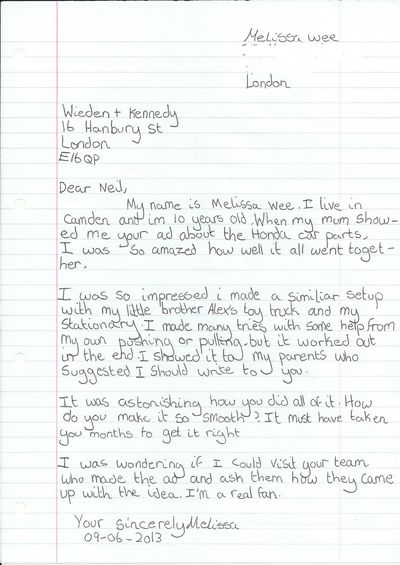 Melissa Wee
London
Wieden + Kennedy
16 Hanbury St
London
E16QP
Dear Neil,
My name is Melissa Wee. I live in
Camden and im 10 years old. When my mum show-
ed me your ad about the Honda car parts,
I was so amazed how well it all went toget-
her.
I was so impressed i made a similiar setup
with my little brother Alex's toy truck and my
Stationary. I made many tries with some help from
my own pushing or pulling. but it worked out
in the end. I showed it to my parents who
suggested I should write to you.
It was astonishing how you did all of it. How
do you make it so smooth? It must have taken
you months to get it right
I was wondering if I could visit your team
who made the ad and ask them how they came
up with the idea. I'm a real fan.
Your Sincerely Melissa
09-06-2013